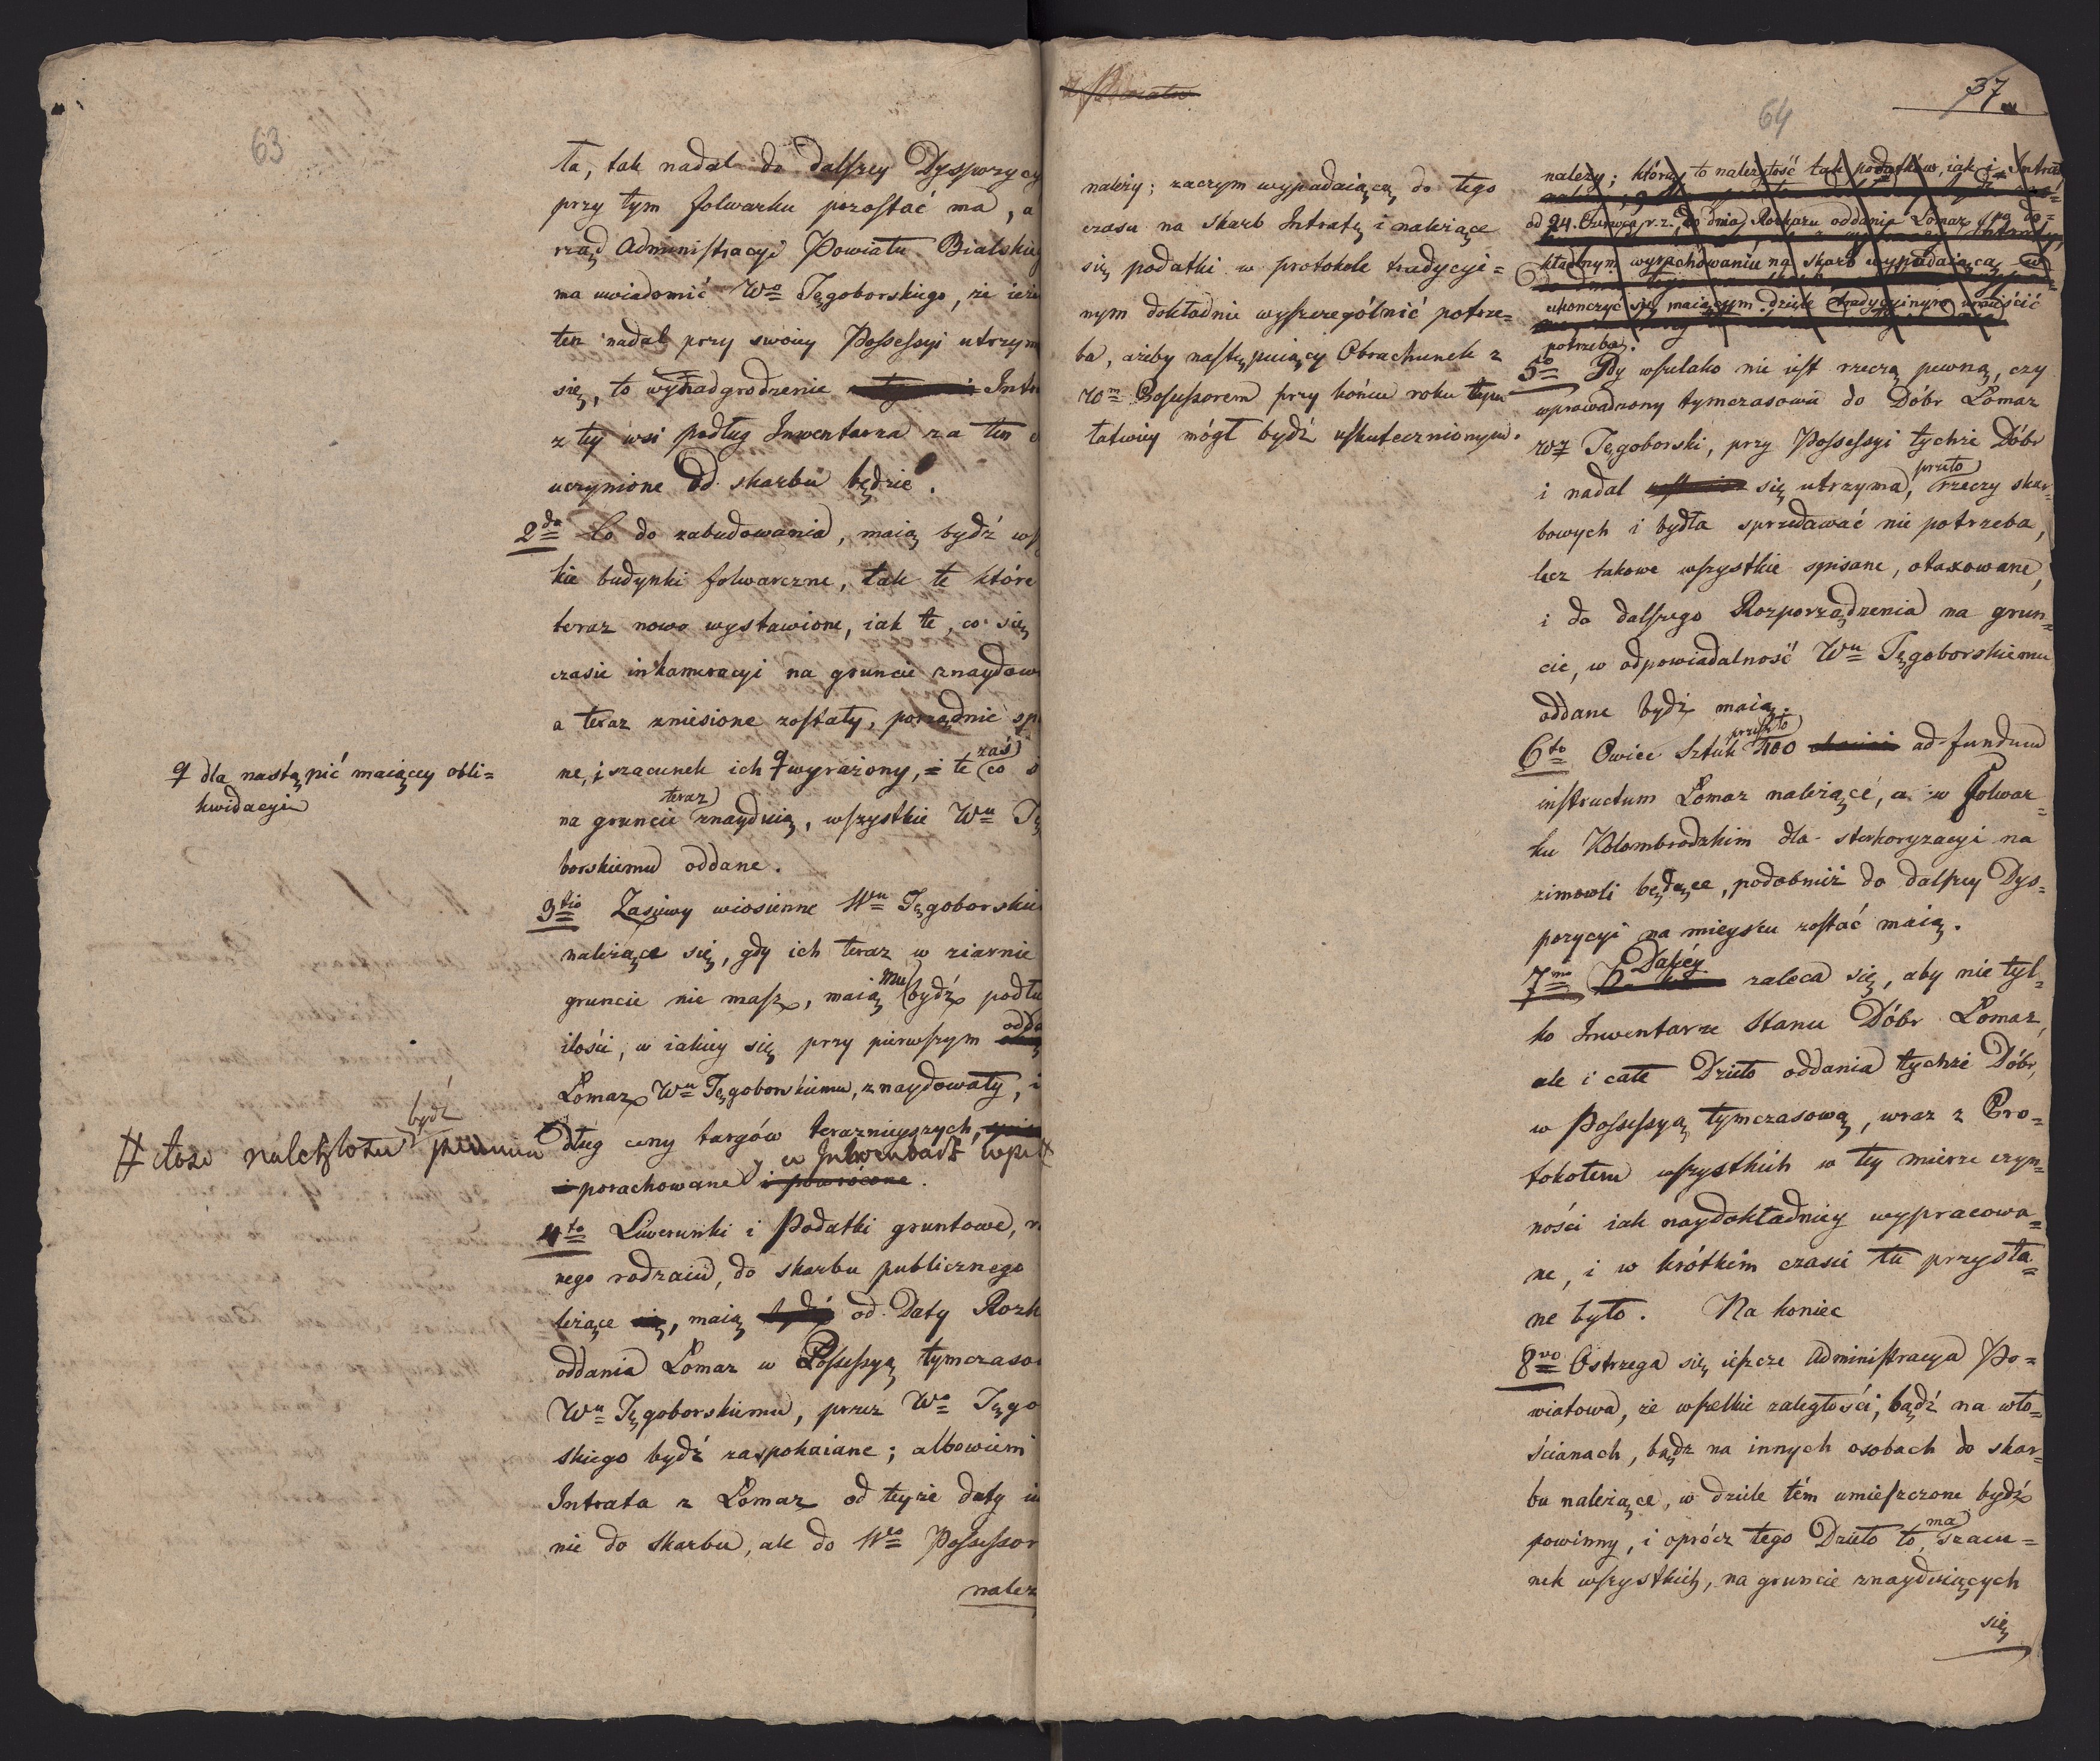 63
ta, tak nadal do dalszey Dyspozycy
przy tym folwarku pozostać ma, a
rząd Administracyi Powiatu Bialskieg
ma uwiadomić Wo Tęgoborskiego, że ieże
ten nadal przy swoiey Possessyi utrzym
się, to wynadgrodzenie Intr
z tey wsi podług Inwentarza za ten
uczynione od skarbu będzie.
2do Co do zabudowania, maią bydź wsz
kie budynki folwarczne, tak te które
teraz nowo wystawione, iak te, co się
czasie inkameracyi na gruncie znaydow
a teraz zniesione zostały, porządnie sp
ne, i szacunek ich wyrażony, te zaś co s
q dla nastąpić maiącey obli=
kwidacyi
na gruncie teraz znayduią, wszystkie Wu Tę
borskiemu oddane.
3tio Zasiewy wiosienne Wu Tęgoborskie
należące się, gdy ich teraz w ziarnie
gruncie nie masz, maią mu bydź podłu
ilości, w iakiey się przy pierwszym odda
Łomaz Wu Tęgoborskiemu, znaydowały, i
dług ceny targów teraznieyszych,
bydź
porachowane i powrócone.
4to Liwerunki i Podatki gruntowe, r
nego rodzaiu, do skarbu publicznego
leżące się, maią bydź od Daty Rozk
oddania Łomaz w Possessyą tymczaso
Wu Tęgoborskiemu, przez Wo Tęgo
skiego bydź zaspokaiane; albowiem
Intrata z Łomaz od teyże daty iu
nie do skarbu, ale do Wo Possessor
należ
37
64
należy; zaczym wypadaiącą do tego
czasu na skarb Intratę i należące
się podatki w protokole tradycyi=
nym dokładnie wyszczególnić potrze=
ba, ażeby następuiący Obrachunek z
Wm Possessorem przy końcu roku tym
łatwiey mógł bydź uskutecznionym.
należy; którą to należytość tak podatków, iak i Intrat
od 24. Czerwca r. z., do dnia Rozkazu oddania Łomaz, po do=
kładnym wyrachowaniu na skarb wypadaiącą, w
ukończyć się maiącym dziele tradycyinym umieścić
potrzeba.
5to Gdy wszelako nie iest rzeczą pewną, czy
wprowadzony tymczasowie do Dóbr Łomaz
Wz Tęgoborski, przy Possessyi tychże Dóbr
i nadal się utrzyma, przeto rzeczy skar=
bowych i bydła sprzedawać nie potrzeba,
lecz takowe wszystkie spisane, otaxowane,
i do dalszego Rozporządzenia na grun=
cie, w odpowiedalność Wu Tęgoborskiemu
oddane bydź maią.
6to Owiec Sztuk przeszło 400 ad fundum
instructum Łomaz należące, a w folwar=
ku Kolombrodzkim dla sterkoryzacyi na
zimowli będące, podobnież do dalszey Dys=
pozycyi na mieyscu zostać maią.
7mo Daléy zaleca się, aby nie tyl=
ko Inwentarze Stanu Dóbr Łomaz,
ale i całe Dzieło oddania tychże Dóbr,
w Possessyą tymczasową, wraz z Pro=
tokołem wszystkich w tey mierze czyn=
ności iak naydokładniey wypracowa=
ne, i w krótkim czasie tu przysła=
ne było. Na koniec
8vo Ostrzega się ieszcze Administracya Po=
wiatowa, że wszelkie zaległości, bądź na wło=
ścianach, bądz na innych osobach do skar=
bu należące, w dziele tém umieszczone bydź
powinny, i oprócz tego Dzieło to, ma szacu=
nek wszystkich, na gruncie znayduiących
się